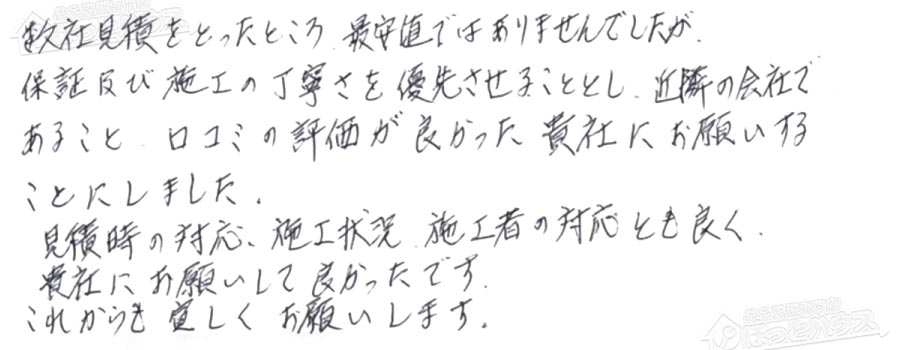 数社見積をとったところ、最安値ではありませんでしたが、
保証及び施工の丁寧さを優先させることとし、近隣の会社で
あること、口コミの評価が良かった貴社にお願いする
ことにしました。
見積時の対応、施工状況、施工者の対応とも良く、
貴社にお願いして良かったです。
これからも宜しくお願いします。